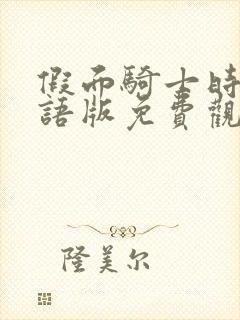 假面騎士時
語版免費觀
隆美尔